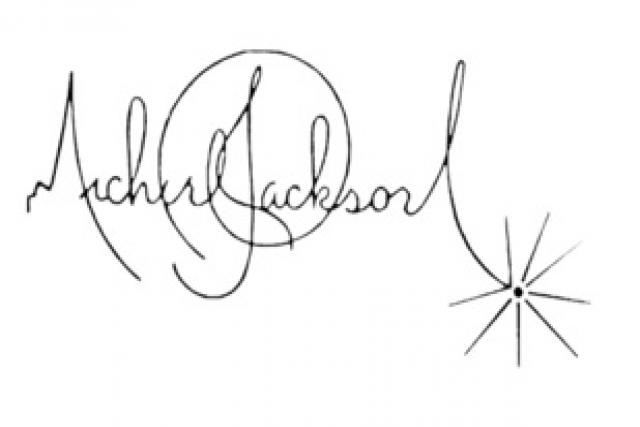 Michael Jackson